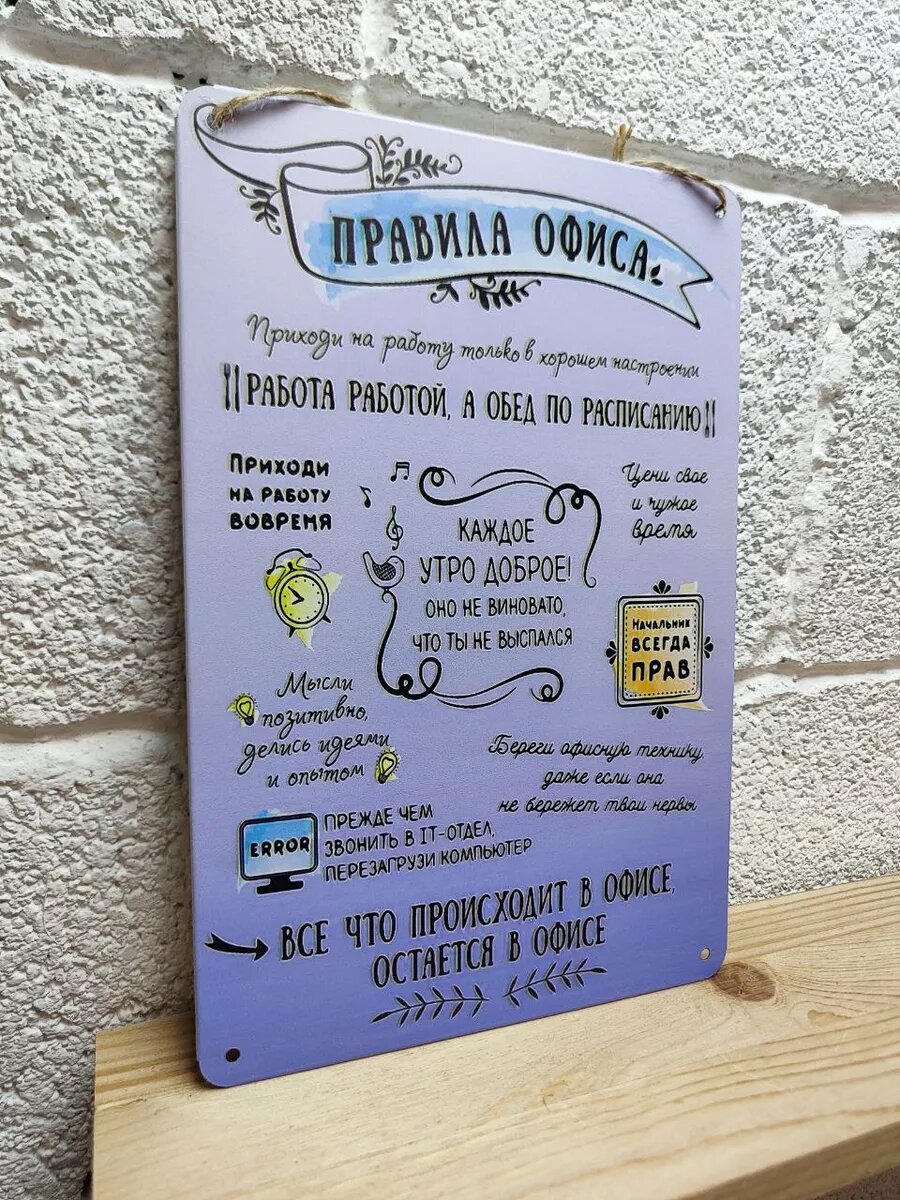 ПРАВИЛА ОФИСА
Приходи на работу только в хорошем настроении
РАБОТА РАБОТОЙ, А ОБЕД ПО РАСПИСАНИЮ
ПРИХОДИ
НА РАБОТУ
ВОВРЕМЯ
КАЖДОЕ
УТРО ДОБРОЕ!
ОНО НЕ ВИНОВАТО,
ЧТО ТЫ НЕ ВЫСПАЛСЯ
Цени свое
и чужое
время
НАЧАЛЬНИК
ВСЕГДА
ПРАВ
Мысли
позитивно,
делись идеями
и опытом
Береги офисную технику,
даже если она
не бережет твои нервы
ERROR
ПРЕЖДЕ ЧЕМ
ЗВОНИТЬ В IT-ОТДЕЛ,
ПЕРЕЗАГРУЗИ КОМПЬЮТЕР
ВСЕ ЧТО ПРОИСХОДИТ В ОФИСЕ,
ОСТАЕТСЯ В ОФИСЕ